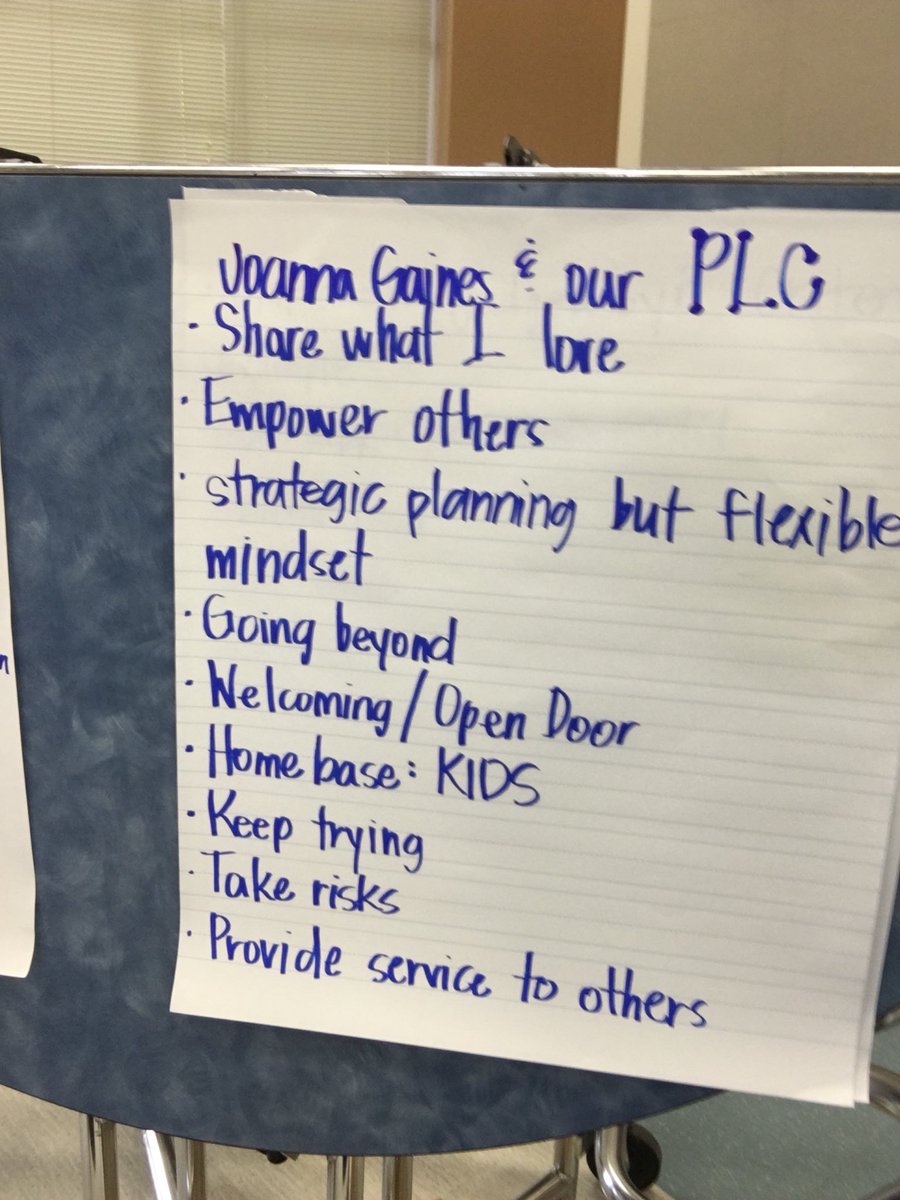 Joanna Gaines & our PLC
· Share what I love
· Empower others
· strategic planning but flexible
mindset
· Going beyond
· Welcoming/Open Door
· Home base: KIDS
· Keep trying
· Take risks
· Provide service to others